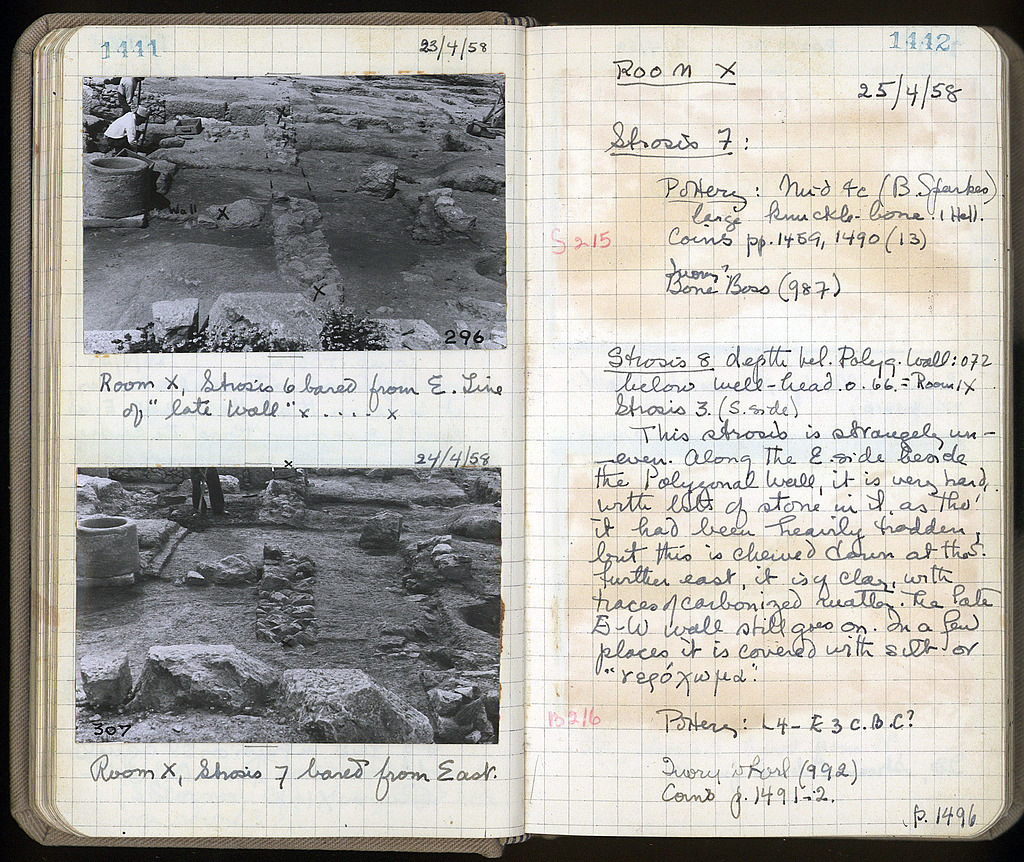 1441
23/4/58
x
Wall x
x
296
Room X, Strosis 6 bared from E. Line
of "late wall" x . . . . x
24/4/58
x
307
Room X, Strosis 7 bared from East.
1442
Room X
25/4/58
Strosis 7:
Pottery: Mid 4c (B. Sparkes)
large knuckle-bone. 1 Hell.
S 215
Coins pp. 1489, 1490 (13)
Ivory?
Bone Boss (987)
Strosis 8 depth bel. Polyg. Wall: 072
below well-head. 0.66. = Room IX
Strosis 3. (S. side)
This strosis is strangely un-
-even. Along the E side beside
the Polygonal Wall, it is very hard,
with lots of stone in it, as tho'
it had been heavily trodden,
but this is chewed down at the S.
further east, it is of clay, with
traces of carbonized matter. The late
E-W wall still goes on. In a few
places it is covered with silt or
"νερόχωμα".
B 216
Pottery: L4 - E3 c. B.C?
Ivory whorl (992)
Coins p. 1491-2.
p. 1496